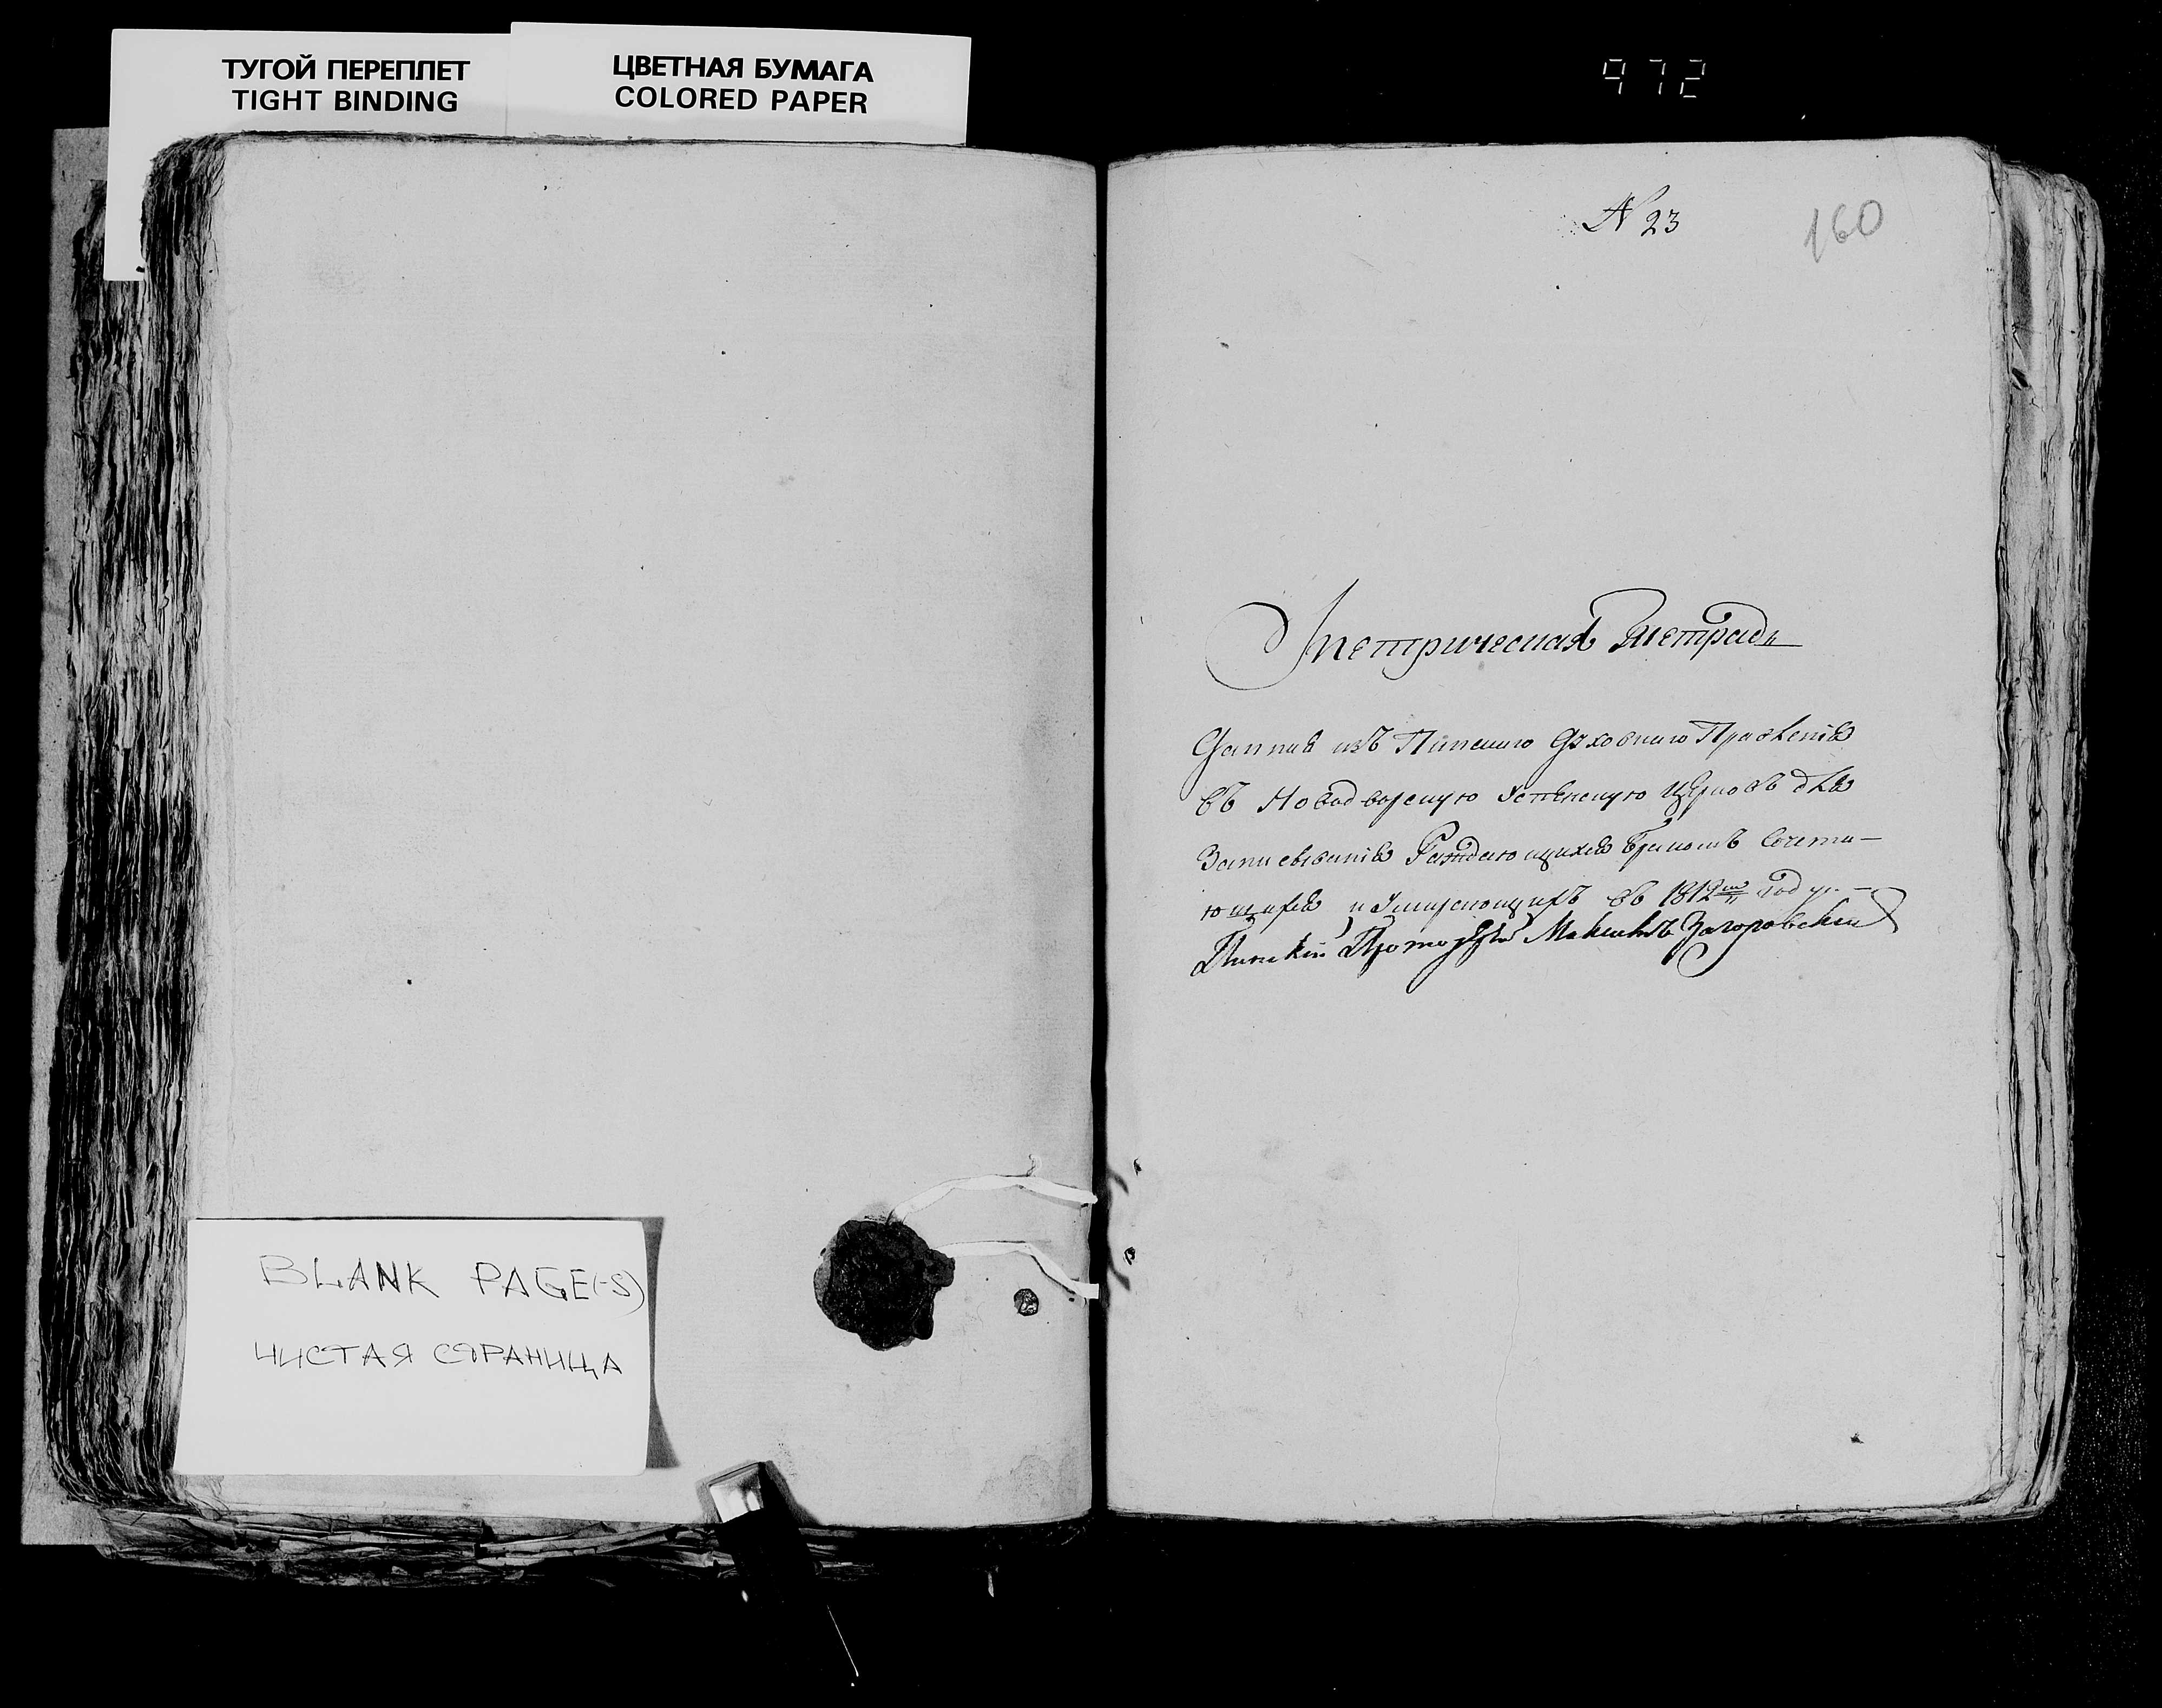 ТУГОЙ ПЕРЕПЛЕТ
TIGHT BINDING
ЦВЕТНАЯ БУМАГА
COLORED PAPER
972
N 23
160
Метрическая Тетрадь
Данная изъ Пинскаго Духовнаго Правленія
въ Новодворскую Успенскую Церковь для
Записыванія Раждающихся Бракомъ Сочета-
ющихся и Умирающихъ въ 1812м Году. –
Пинский Протоиерей Максимъ Загоровский
BLANK PAGE(-S)
ЧИСТАЯ СТРАНИЦА